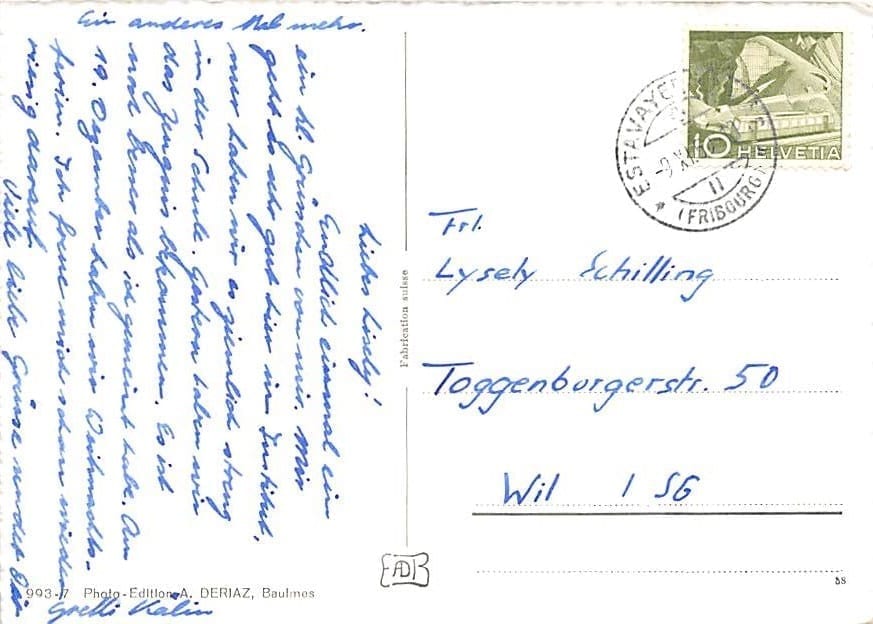 Liebes Lisely!
Endlich einmal ein
ein kl. Grüsschen von mir. Mir
geht es sehr gut hier im Institut,
nur haben wir es ziemlich streng
in der Schule. Gestern haben wir
das Zeugnis bekommen. Es ist
noch besser als ich gemeint habe. Am
19. Dezember haben wir Weihnachts-
ferien. Ich freue mich schon wieder
riesig darauf.
Viele liebe Grüsse sendet Dir
Gretli Kälin
Ein anderes Mal mehr.
Fabrication suisse
HELVETIA
10
ESTAVAYER
-9.XII
(FRIBOURG)
Frl.
Lysely Schilling
Toggenburgerstr. 50
Wil / SG
AD
993-7 Photo-Edition A. DERIAZ, Baulmes
58